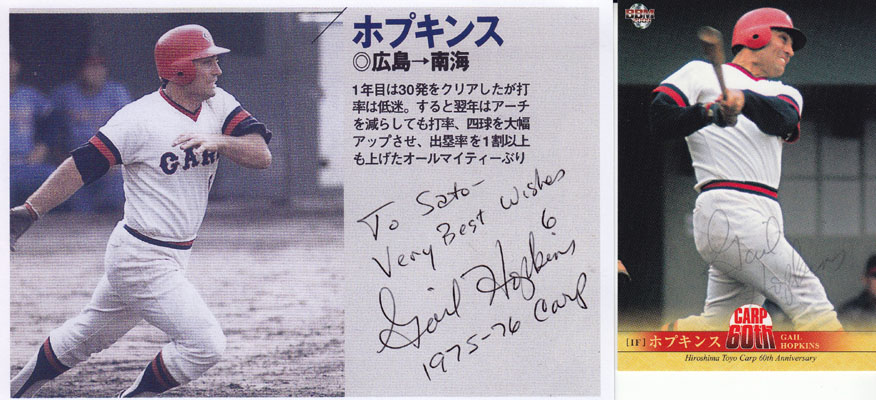 ホプキンス
◎広島→南海
1年目は30発をクリアしたが打
率は低迷。すると翌年はアーチ
を減らしても打率、四球を大幅
アップさせ、出塁率を1割以上
も上げたオールマイティーぶり
To Sato-
Very Best Wishes
6
Gail Hopkins
1975-76 Carp
CARP
BBM
Gail
Hopkins
CARP
60th
[1F] ホプキンス GAIL
HOPKINS
Hiroshima Toyo Carp 60th Anniversary